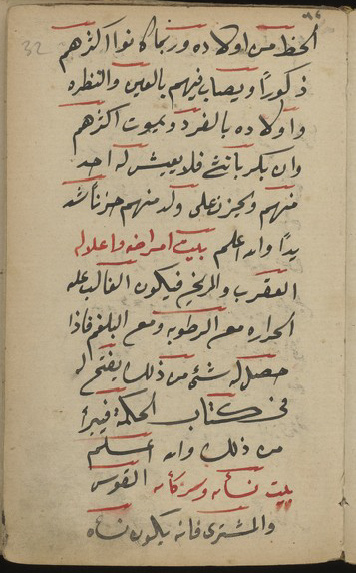 32
الحظ من اولاده وربما كانوا اكثرهم
ذكوراً ويصاب فيهم بالعين والنظره
واولاده بالفرد ويموت اكثرهم
وان بكر بانثى فلا يعيش له احد
منهم ويحزن على ولد منهم حزناً شد
يداً والله اعلم بيت امراضه واعلاله
العقرب والمريخ فيكون الغالب عليه
الحراره مع الرطوبه ومع البلغم فاذا
حصل له شئ من ذلك يفتح له
في كتاب الحكمة فيبرأ
من ذلك والله اعلم
بيت نسائه وسركائه القوس
والمشترى فانه يكون نسائه